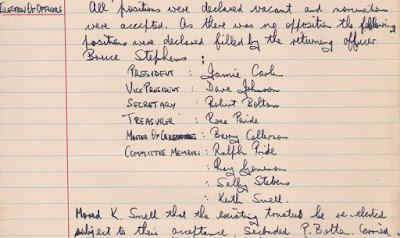 ELECTION OF OFFICERS
All positions were declared vacant and nominations
were accepted. As there was no opposition the following
positions were declared filled by the returning officer
Bruce Stephens:
PRESIDENT : Jamie
VICE PRESIDENT : Dave Johnson
SECRETARY : Robert Bolton
TREASURER : Rose Pride
MASTER OF CEREMONIES : Barry Collerson
COMMITTEE MEMBERS : Ralph Pride
: Roy
: Sally Stebens
: Keith Smell.
Moved K. Smell that the existing trustees be re-elected
subject to their acceptance. Seconded P. Carried.